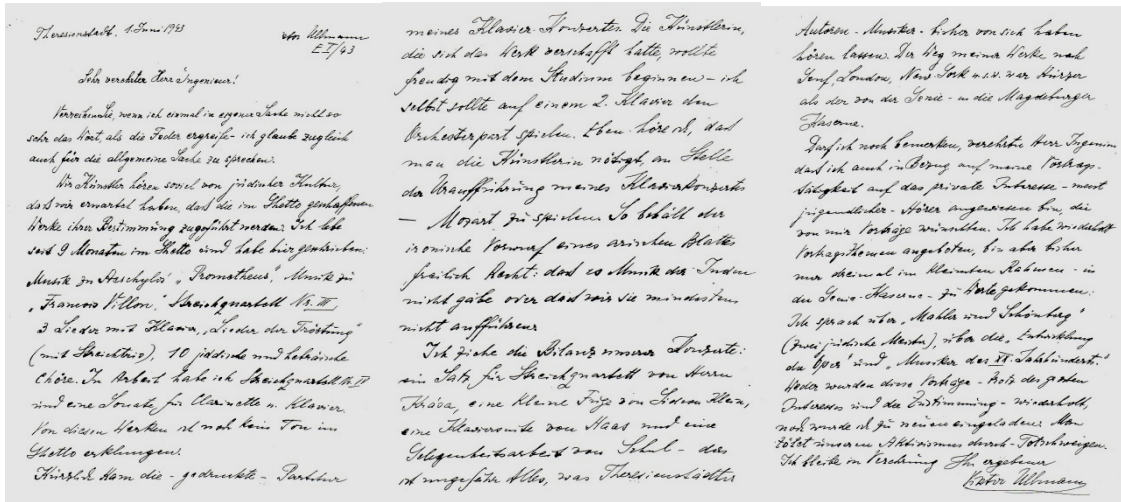 Theresienstadt, 1. Juni 1943
Viktor Ullmann
E I/43
Sehr verehrter Herr Ingenieur!
Verzeihen Sie, wenn ich einmal in eigener Sache nicht so
sehr das Wort, als die Feder ergreife - ich glaube zugleich
auch für die allgemeine Sache zu sprechen.
Wir Künstler hören soviel von jüdischer Kultur,
dass wir erwartet haben, dass die im Ghetto geschaffenen
Werke ihrer Bestimmung zugeführt werden. Ich lebe
seit 9 Monaten im Ghetto und habe hier geschrieben:
Musik zu Aeschylos' „Prometheus“, Musik zu
„Francois Villon“, Streichquartett Nr. III,
3 Lieder mit Klavier, „Lieder der Tröstung“
(mit Streichtrio), 10 jiddische und hebräische
Chöre. In Arbeit habe ich Streichquartett Nr. IV
und eine Sonate für Clarinette u. Klavier.
Von diesen Werken ist noch kein Ton im
Ghetto erklungen.
Kürzlich kam die - gedruckte - Partitur
meines Klavier-Konzertes. Die Künstlerin,
die sich das Werk verschafft hatte, wollte
freudig mit dem Studium beginnen - ich
selbst sollte auf einem 2. Klavier den
Orchesterpart spielen. Eben höre ich, dass
man die Künstlerin nötigt, an Stelle
der Uraufführung meines Klavierkonzertes
- Mozart zu spielen. So behält der
ironische Vorwurf eines arischen Blattes
freilich Recht: dass es Musik der Juden
nicht gäbe oder dass wir sie mindestens
nicht aufführen.
Ich ziehe die Bilanz unserer Konzerte:
ein Satz für Streichquartett von Herrn
Krása, eine kleine Fuge von Gideon Klein,
eine Klaviersuite von Haas und eine
Gelegenheitsarbeit von Schul - das
ist ungefähr Alles, was Theresienstädter
Autoren - Musiker - bisher von sich haben
hören lassen. Der Weg meiner Werke nach
Genf, London, New York u.s.w. war kürzer
als der von der Genie- in die Magdeburger
Kaserne.
Darf ich noch bemerken, verehrter Herr Ingenieur,
dass ich auch in Bezug auf meine Vortrags-
tätigkeit auf das private Interesse - meist
jugendlicher - Hörer angewiesen bin, die
von mir Vorträge wünschten. Ich habe wiederholt
Vortragsthemen angeboten, bin aber bisher
nur dreimal im kleinsten Rahmen - in
der Genie-Kaserne - zu Worte gekommen:
Ich sprach über „Mahler und Schönberg“
(zwei jüdische Meister), über die „Entwicklung
der Oper“ und „Musiker des XX. Jahrhunderts“.
Weder wurden diese Vorträge - trotz des großen
Interesses und der Zustimmung - wiederholt,
noch wurde ich zu neuen eingeladen. Man
tötet unseren Aktivismus durch Totschweigen.
Ich bleibe in Verehrung Ihr ergebener
Viktor Ullmann